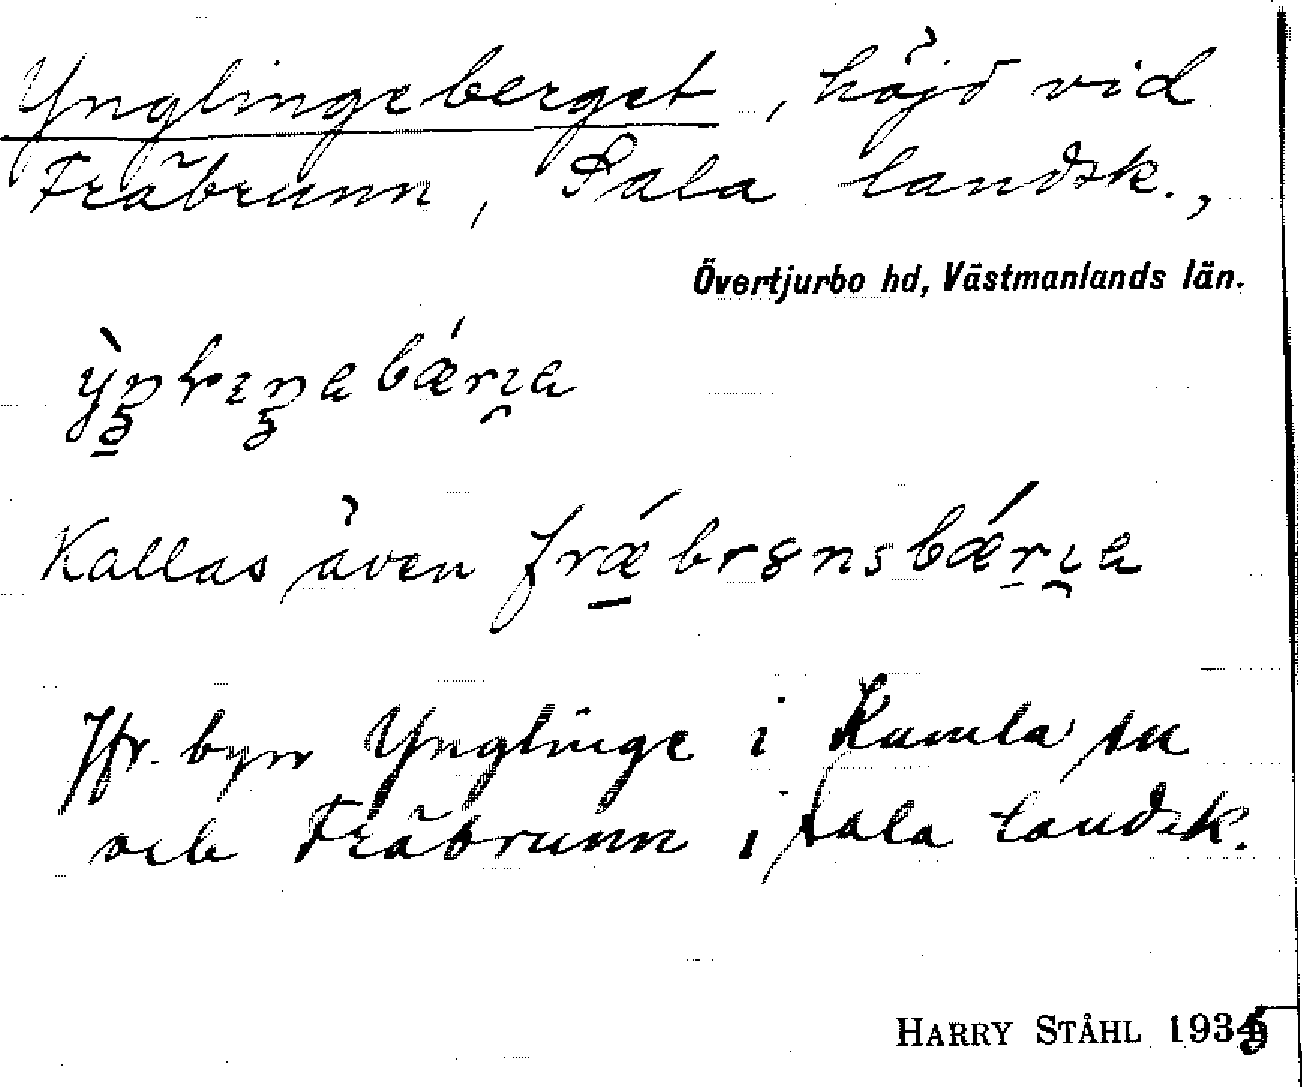 Ynglingeberget, höjd vid
Fräbrunn, Sala landsk.,
Övertjurbo hd, Västmanlands län.
Kallas även
Jfr. byn Ynglinge i Kumla sn
och Fräbrunn i Sala landsk.
HARRY STÅHL 1935